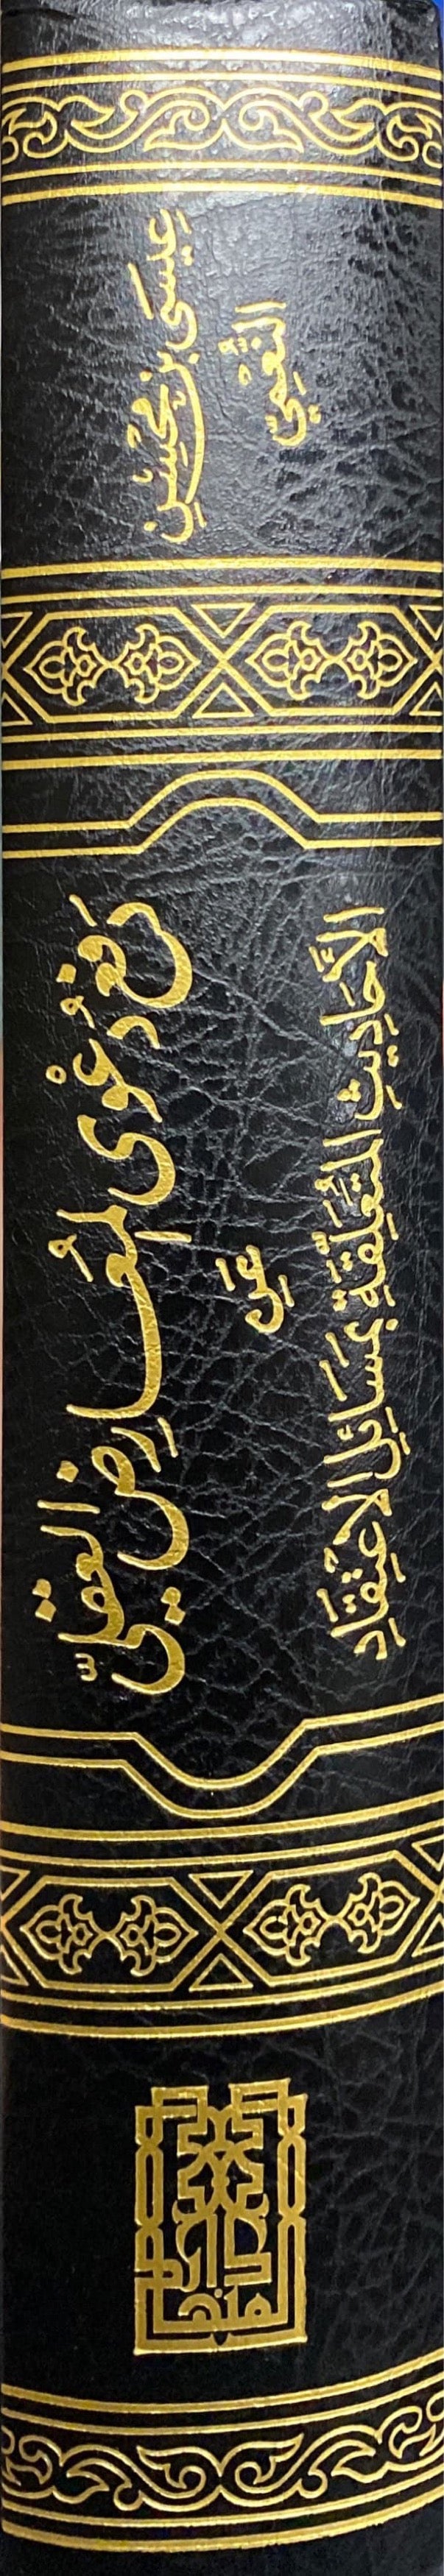 عِيسَى بن مُحْسِن
النُّعْمِيّ
دَفْعُ دَعْوَى المُعَارِضِ العَقليّ
عَنِ
الأَحَادِيثِ المُتَعَلِّقَةِ بِمَسَائِلِ الاعْتِقَادِ
دار المنهاج